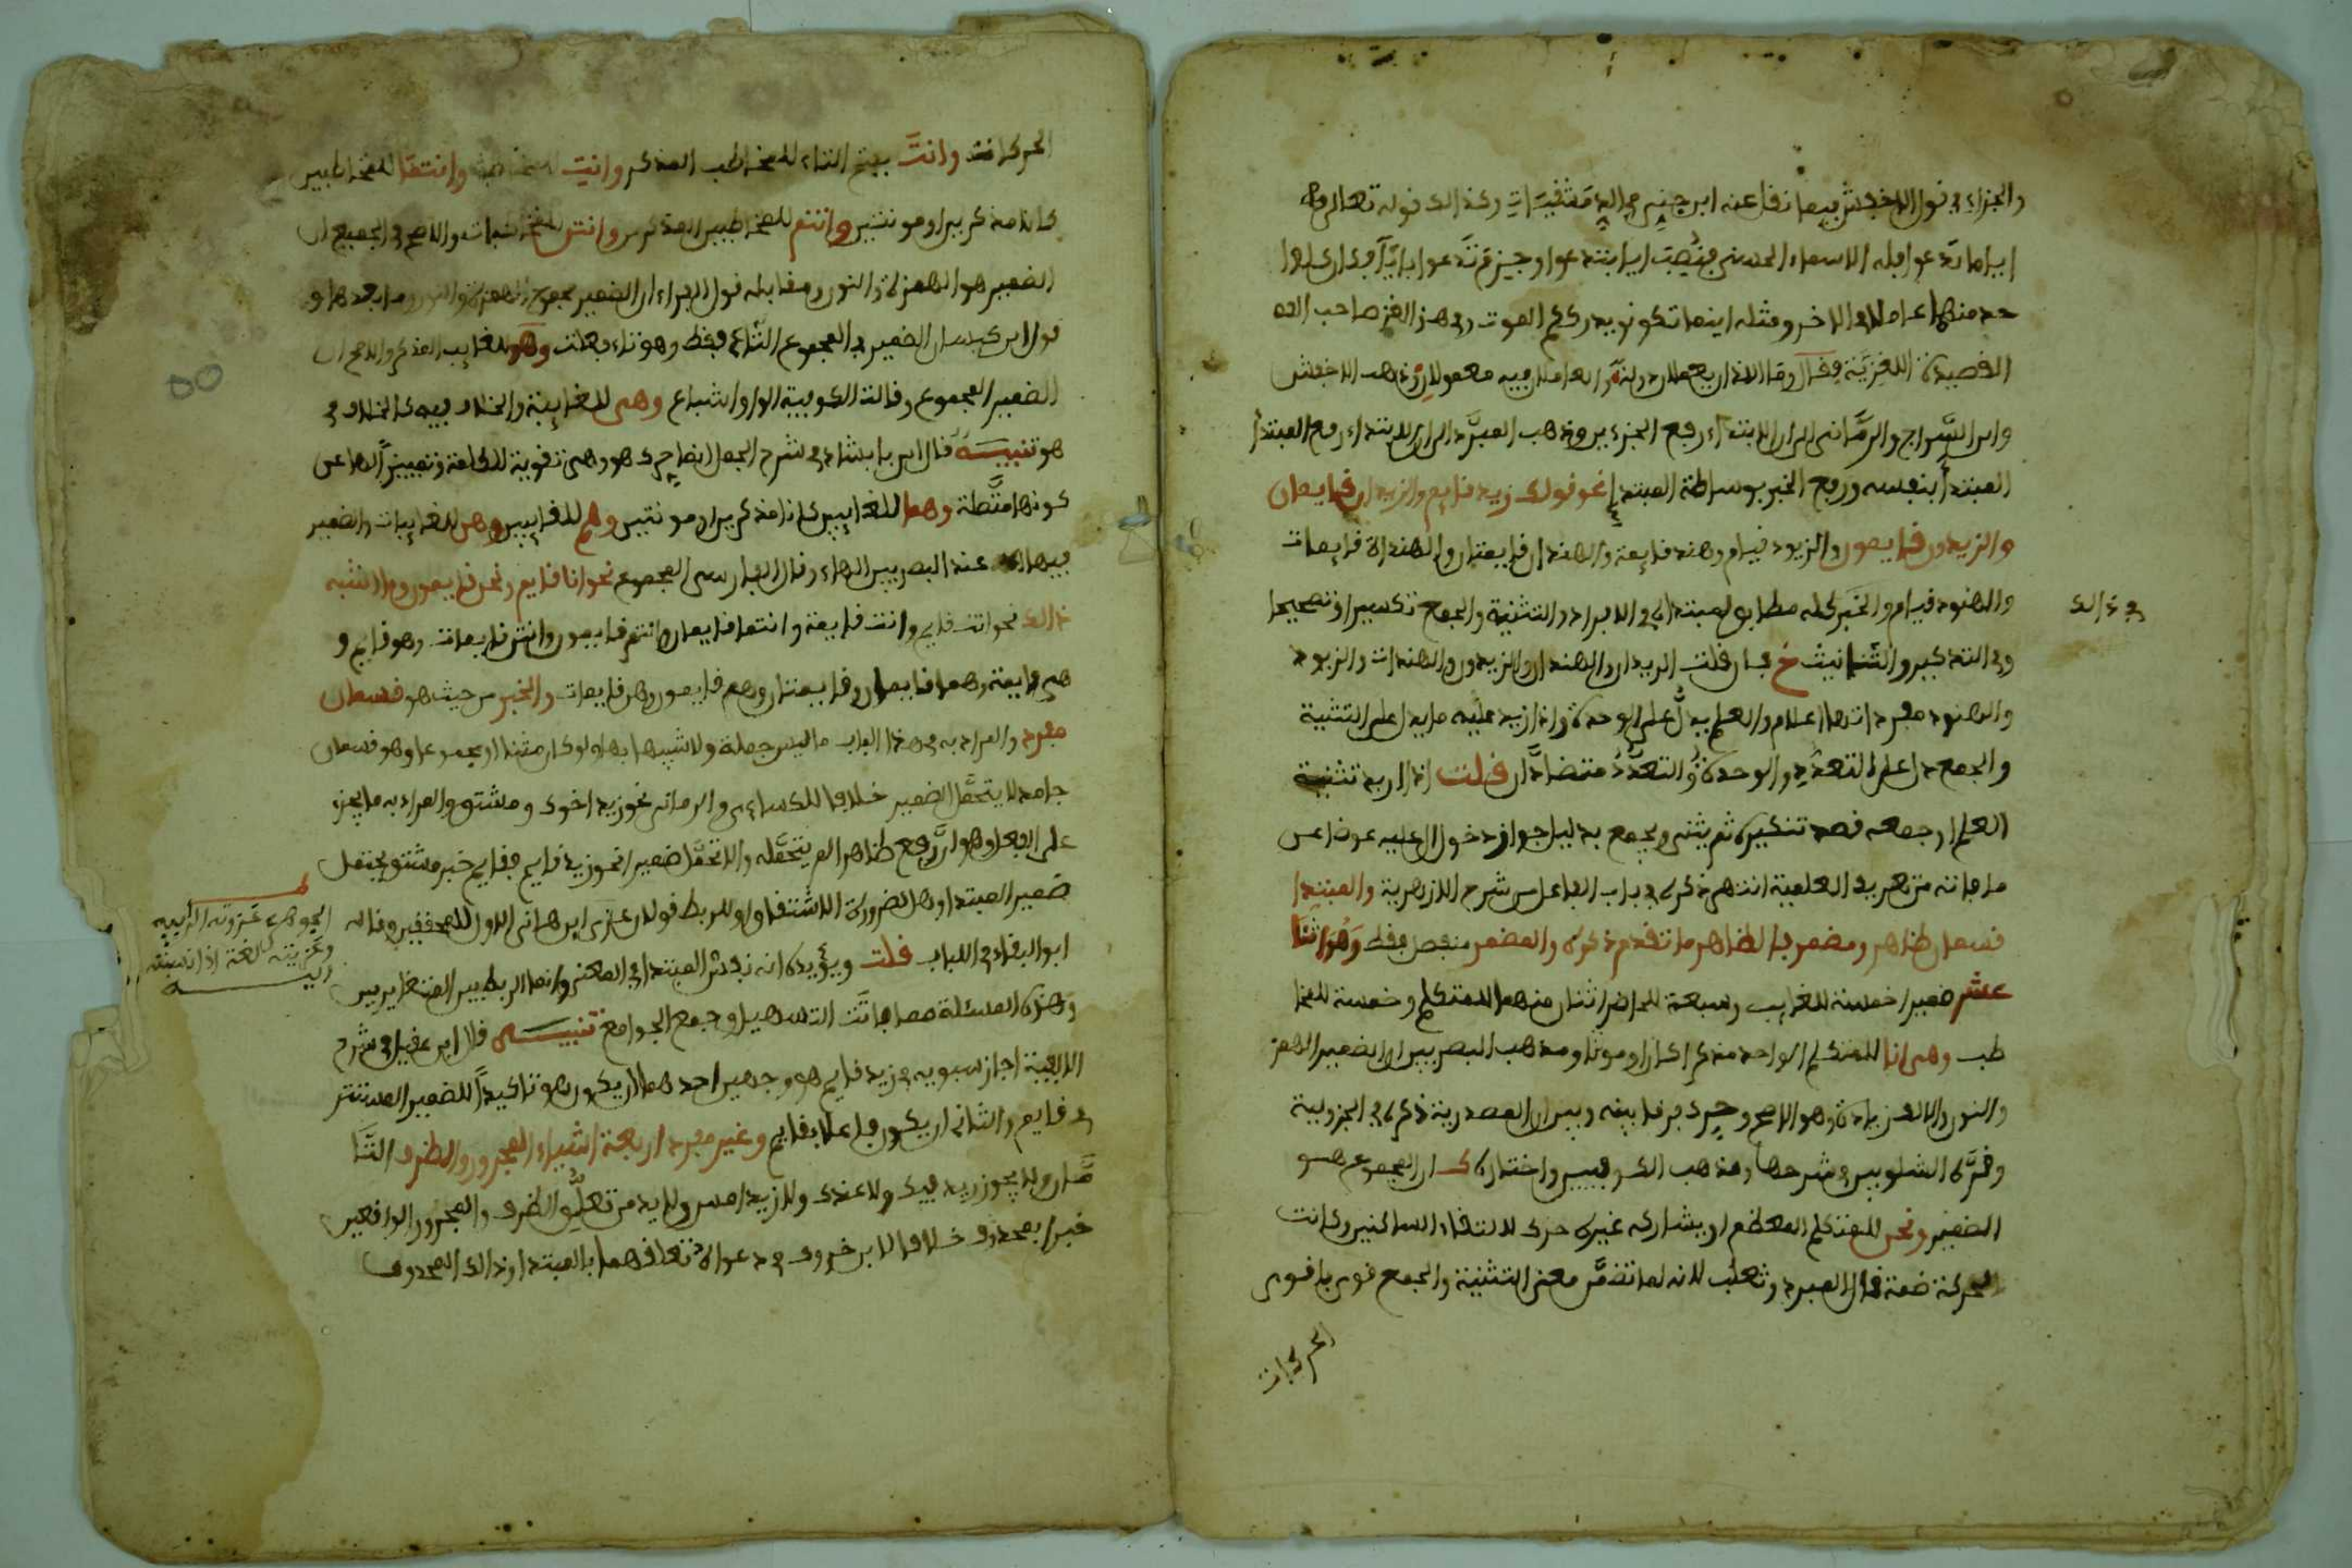 والجزاء في قول الاخفش فيما نقل عنه ابن جني في الد مشقيات وكذالك قوله تعالى
ايا ما تدعوا فله الاسماء الحسنى فنصب ايا بتدعوا وجزم تدعوا بايا فكان كل وا
حد منهما عاملا في الاخر ومثله اينما تكونوا يدرككم الموت وفي هذا الغز صاحب
القصيدة اللغزية فقال وما اللذان يعملان دولة والعاملان فيه معمولان وذهب الاخفش
وابن السراج والرماني الى ان الابتداء رفع الجزءين وذهب المبرد الى ان الابتداء رفع المبتدأ
المبتدأ بنفسه ورفع الخبر بوساطة المبتدإ نحو قولك زيد قايم والزيدان قايمان
والزيدون قايمون والزيود قيام وهند قايمة والهندان قايمتان والهندات قايمات
والهنود قيام والخبر كله مطابق لمبتداه في الافراد والتثنية والجمع تكسيرا وتصحيحا
وفي التذكير والتانيث فان قلت الزيدان والهندان والزيدون والهندات والزيود
في ذالك
والهنود مفرداتها اعلام والعلم يدل على الوحدة واذا زيد عليه ما يدل على التثنية
والجمع دل على التعدد والوحدة والتعدد متضادان قلت اذا اريد تثنية
العلم او جمعه قصد تنكيره ثم يثنى ويجمع بدليل جواز دخول ال عليه عوضا عن
ما فاته من تعريف العلمية انتهى ذكره في باب الفاعل من شرح الازهرية والمبتدا
قسمان ظاهر ومضمر فالظاهر ما تقدم ذكره والمضمر منفصل فقط وهو اثنا
عشر ضميرا خمسة للغايب وسبعة للحاضر اثنان منهما للمتكلم وخمسة للمخا
طب وهي انا للمتكلم الواحد مذكرا كان او مونثا ومذهب البصريين ان الضمير الهمز
والنون والالف زيادة وهو الاصح وجيء فرقا بينه وبين ان المصدرية ذكره في الجزولية
وقرره الشلوبين في شرحها ومذهب الكوفيين واختاره ك ان المجموع هو
الضمير ونحن للمتكلم المعظم او يشاركه غيره حرك لالتقاء الساكنين وكانت
الحركة ضمة قال المبرد وثعلب لانه لما تضمن معنى التثنية والجمع قوي باقوى
الحركات
الحركات وانت بفتح التاء للمخاطب المذكر وانت للمخاطبة وانتما للمخاطبين
كانا مذكرين او مونثين وانتم للمخاطبين المذكرين وانتن للمخاطبات والاصح في الجميع ان
الضمير هو الهمزة والنون ومقابله قول الفراء ان الضمير مجموع الهمزة والنون وما بعدها و
قول ابن كيسان الضمير في المجموع التاء فقط وهو تاء فعلت وهو للغايب المذكر والاصح ان
الضمير المجموع وقالت الكوفية الواو اشباع وهي للغايبة والخلاف فيه كالخلاف في
هو تنبيه قال ابن بابشاذ في شرح الجمل انما حرك هو وهي تقوية للكلمة وتمييزا لها عن
كونها متصلة وهما للغايبين كانا مذكرين او مونثين وهم للغايبين وهن للغايبات والضمير
فيها عند البصريين الهاء وقال الفارسي المجموع نحو انا قايم ونحن قايمون وما اشبه
ذالك نحو انت قايم وانت قايمة وانتما قايمان وانتم قايمون وانتن قايمات وهو قايم و
هي قايمة وهما قايمان وقايمتان وهم قايمون وهن قايمات والخبر من حيث هو قسمان
مفرد والمراد به في هذا الباب ما ليس جملة ولا شبيها بها ولو كان مثنا او مجموعا وهو قسمان
جامد لا يتحمل الضمير خلافا للكساءي والرماني نحو زيد اخوك ومشتق والمراد به ما يجري
على الفعل وهو ان رفع ظاهرا لم يتحمله والا تحمل ضميرا نحو زيد قايم فقايم خبر مشتق يحتمل
ضمير المبتدا وهل لضرورة الاشتقاق او للربط قولان عزى ابن هاني الاول للمحققين وقاله
ابو البقاء في اللباب قلت ويؤيده انه نفس المبتدا في المعنى وانما الربط بين المتغايرين
الجوهري عزوته الى ابيه
وعزيته لغة اذا نسبته
اليه
وهذه المسئلة مما فاتت التسهيل وجمع الجوامع تنبيه قال ابن عقيل في شرح
الالفية اجاز سيبويه في زيد قايم هو وجهين احدهما ان يكون هو تاكيدا للضمير المستتر
في قايم والثاني ان يكون فاعلا بقايم وغير مفرد اربعة اشياء المجرور والظرف التا
مان ولا يجوز زيد فيك ولا عندك ولا زيد امس ولا بد من تعلق الظرف والمجرور الواقعين
خبرا بمحذوف خلافا لابن خروف في دعواه تعلقهما بالمبتدا وذالك المحذوف